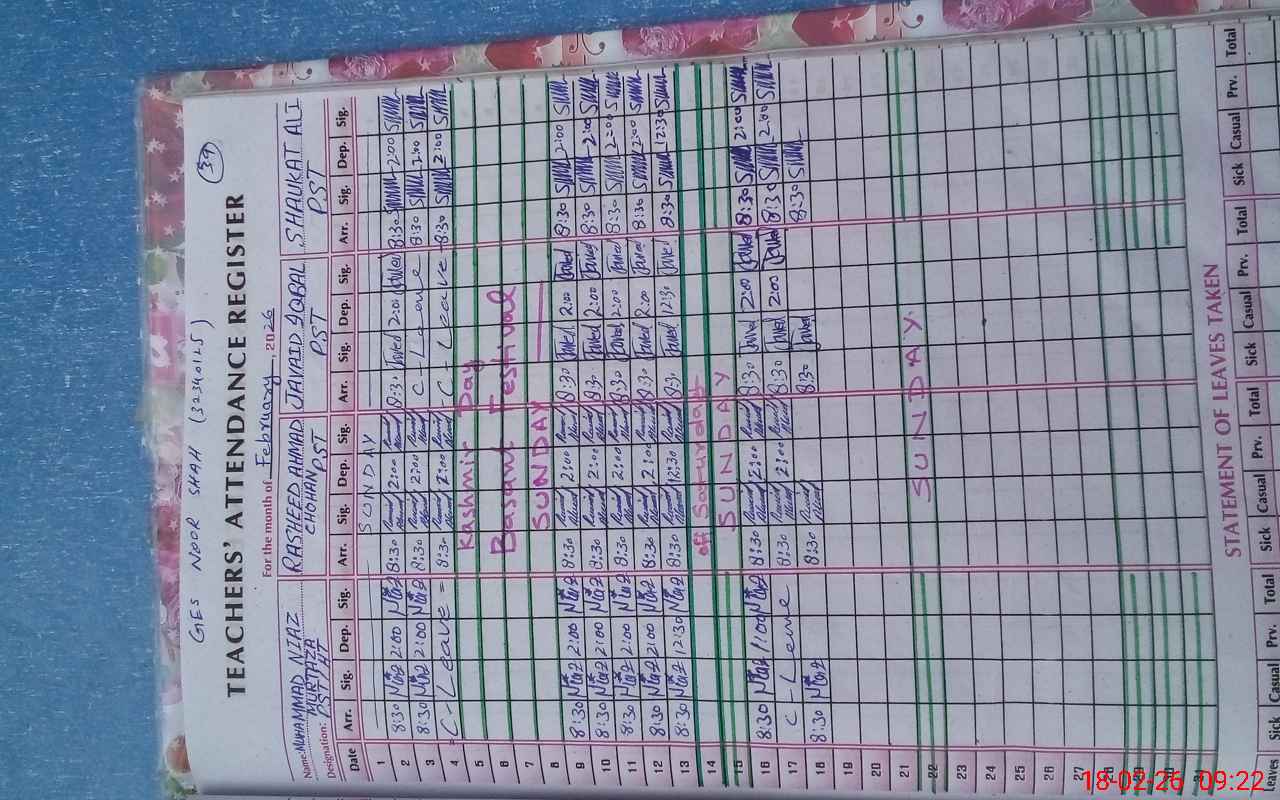 39
GES NOOR SHAH (32340125)
TEACHERS' ATTENDANCE REGISTER
For the month of February, 2026
Name: MUHAMMAD NIAZ MURTAZA RASHEED AHMAD CHOHAN JAVAID IQBAL SHAUKAT ALI
Designation: PST/HT PST PST PST
Date Arr. Sig. Dep. Sig. Arr. Sig. Dep. Sig. Arr. Sig. Dep. Sig. Arr. Sig. Dep. Sig.
1 SUNDAY
2 8:30 Niaz 2:00 Niaz 8:30 2:00 8:30 Javed 2:00 Javed 8:30 2:00
3 8:30 Niaz 2:00 Niaz 8:30 2:00 C - Leave 8:30 2:00
4 C - Leave = 8:30 2:00 C - Leave 8:30 2:00
5 Kashmir Day
6 Basant Festival
7
8 SUNDAY
9 8:30 Niaz 2:00 Niaz 8:30 2:00 8:30 Javed 2:00 Javed 8:30 2:00
10 8:30 Niaz 2:00 Niaz 8:30 2:00 8:30 Javed 2:00 Javed 8:30 2:00
11 8:30 Niaz 2:00 Niaz 8:30 2:00 8:30 Javed 2:00 Javed 8:30 2:00
12 8:30 Niaz 2:00 Niaz 8:30 2:00 8:30 Javed 2:00 Javed 8:30 2:00
13 8:30 Niaz 12:30 Niaz 8:30 12:30 8:30 Javed 12:30 Javed 8:30 12:30
14 off Saturday
15 SUNDAY
16 8:30 Niaz 1:00 Niaz 8:30 2:00 8:30 Javed 2:00 Javed 8:30 2:00
17 C - Leave 8:30 2:00 8:30 Javed 2:00 Javed 8:30 2:00
18 8:30 Niaz 8:30 8:30 Javed 8:30
19
20
21
22 SUNDAY
23
24
25
26
27
28
29
30
STATEMENT OF LEAVES TAKEN
Leaves Sick Casual Prv. Total Sick Casual Prv. Total Sick Casual Prv. Total Sick Casual Prv. Total
18-02-26 09:22